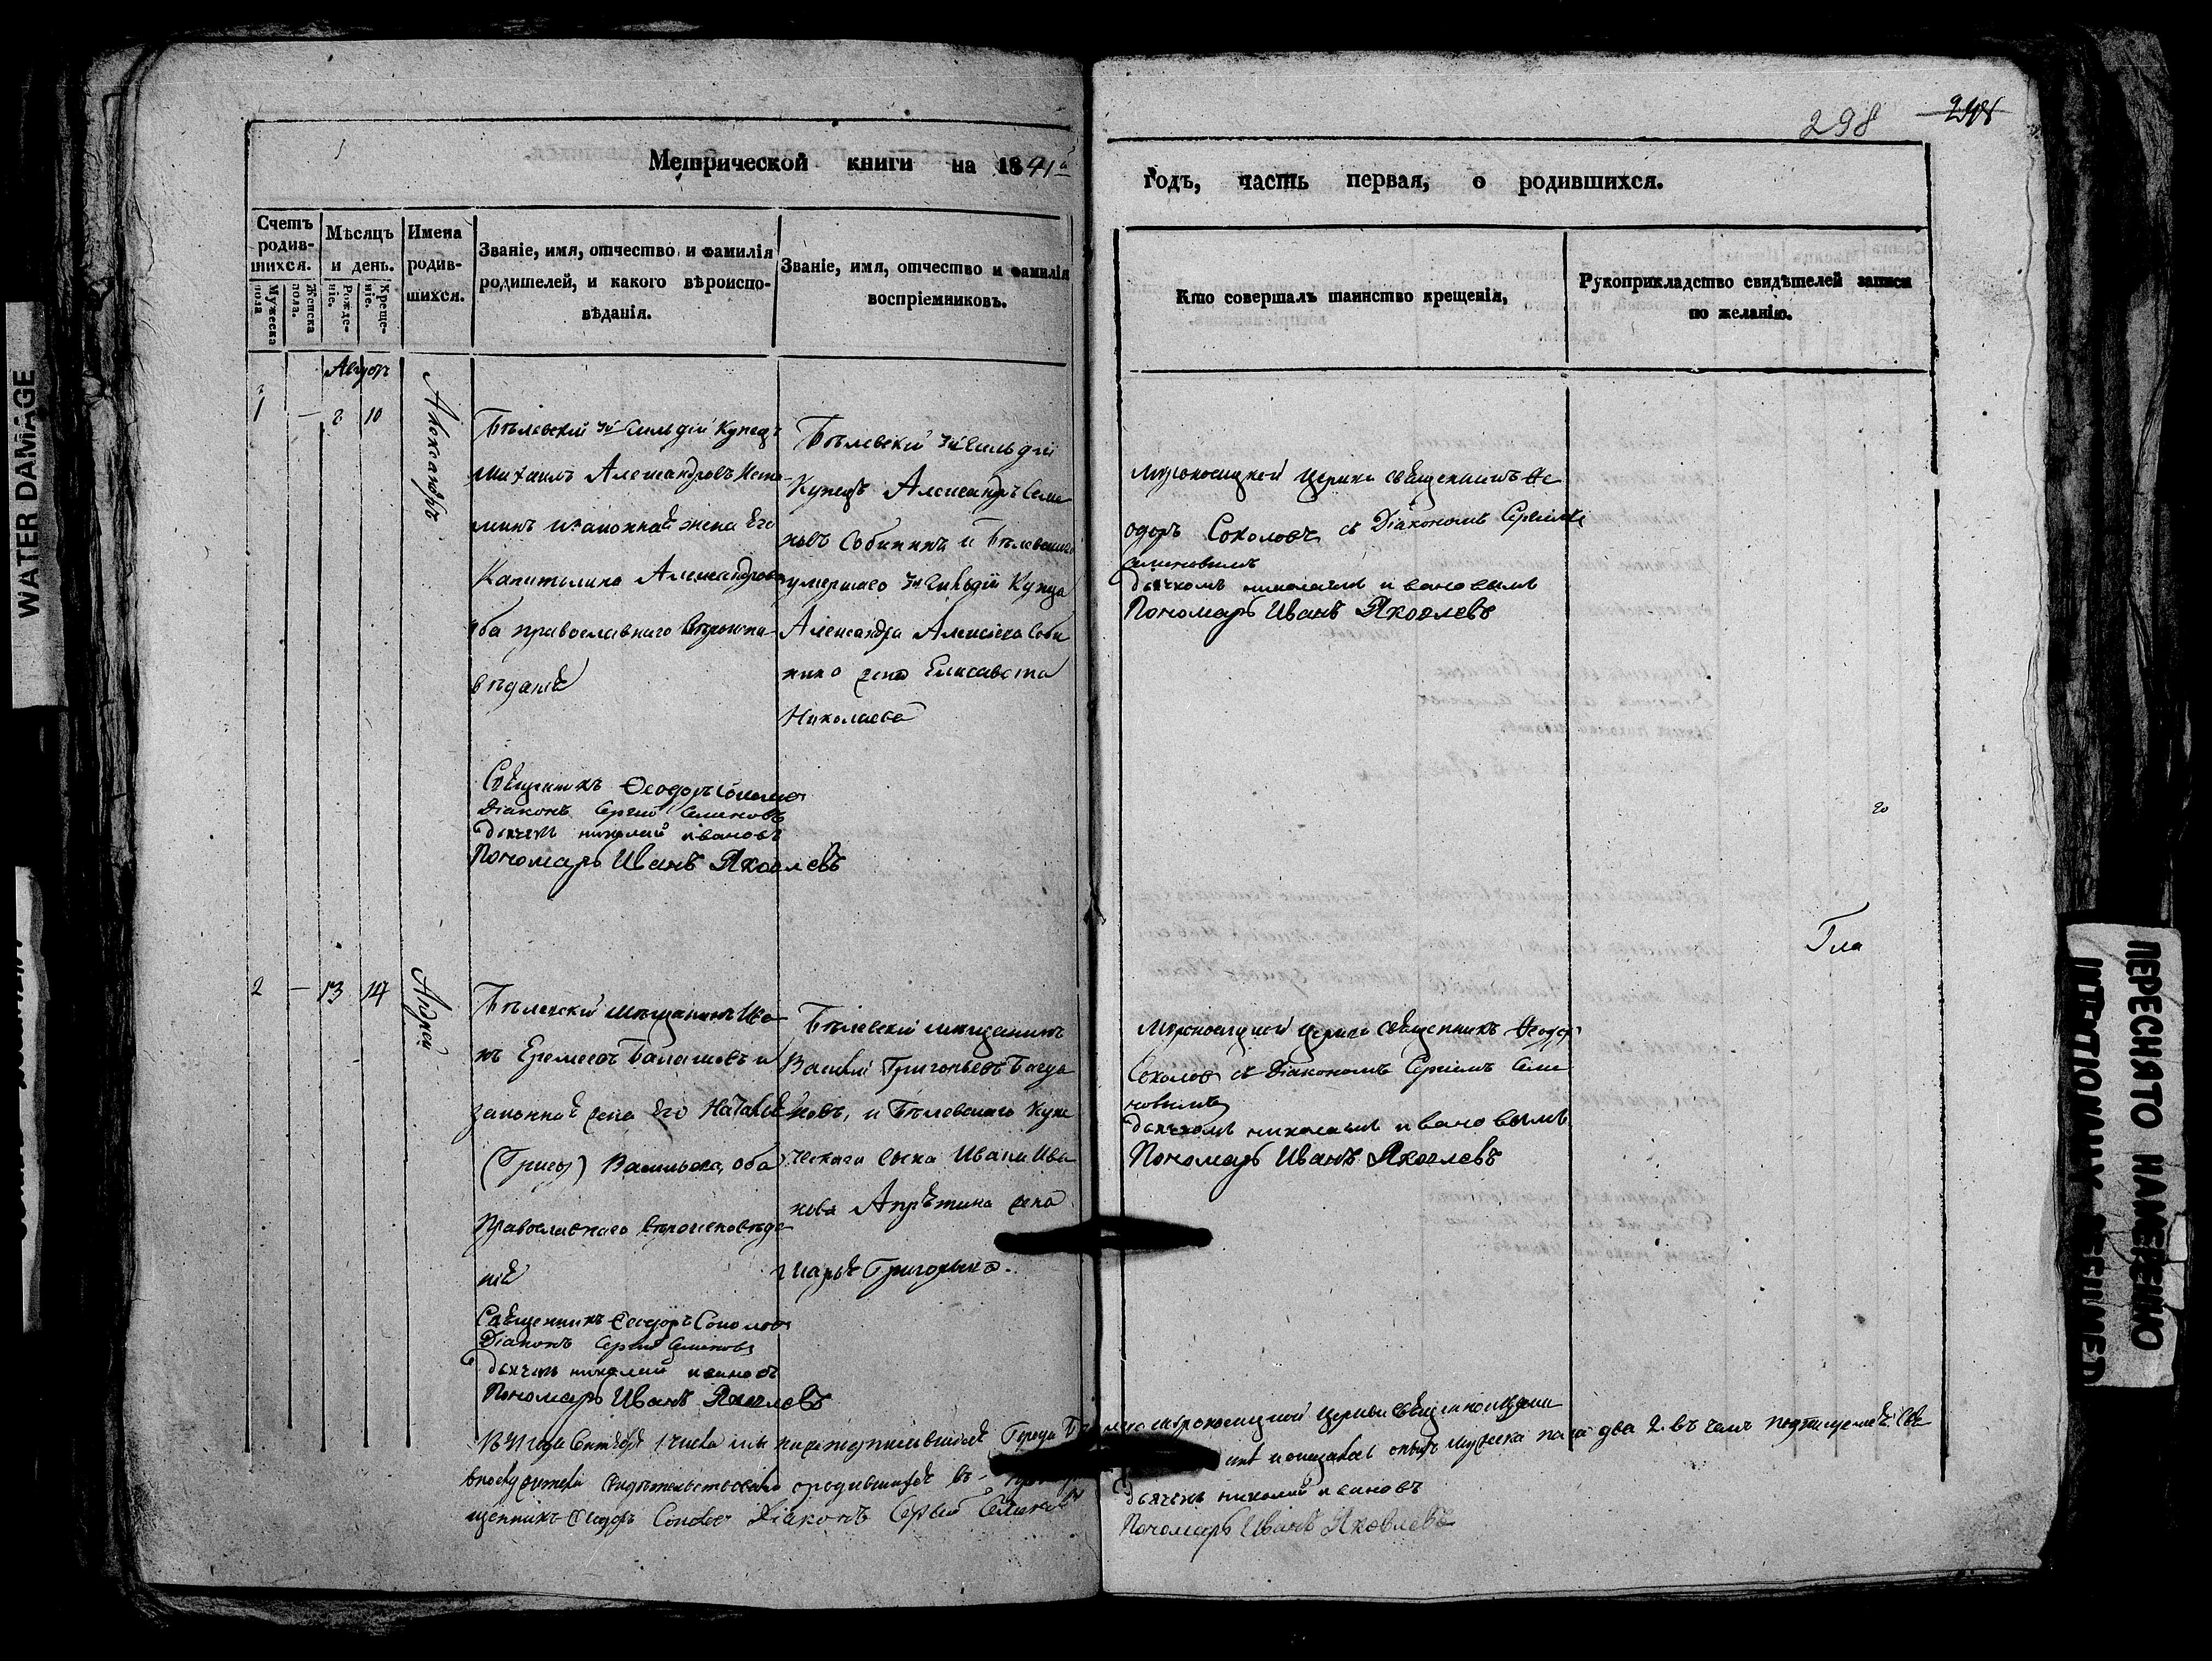 298
Метрической книги на 1841й
годъ, часть первая, о родившихся.
Счетъ родив-шихся.
Мужеска пола
Женска пола.
Мѣсяцъ и день.
Рожде-ніе.
Креще-ніе.
Имена родив-шихся.
Званіе, имя, отчество и фамилія
родителей, и какого вѣроиспо-
вѣданія.
Званіе, имя, отчество и фамилія
воспріемниковъ.
Кто совершалъ таинство крещенія,
Рукоприкладство свидѣтелей записи
по желанію.
Август
1 — 8 10
Александръ
Бѣлевскій 3й Гильдіи Купецъ
Михаилъ Александровъ
законная жена Его
Капитолина Александрова
оба православнаго Вѣроиспо-
вѣданія
Священникъ Ѳеодоръ Соколов
Діаконъ Сергій Семеновъ
дьячекъ николай ивановъ
Пономарь Иванъ Яковлевъ
Бѣлевскій 3й Гильдіи
Купецъ Александръ Семе
новъ Собининъ и Бѣлевскаго
умершаго 3й Гильдіи Купца
Александра Алексѣева Соби
нина жена Елисавета
Николаева
Мѵроносицкой Церкви священникъ Ѳе
одоръ Соколовъ съ Діакономъ Сергіемъ
Семеновымъ
дьячкомъ николаемъ ивановымъ
Пономарь Иванъ Яковлевъ
Гла
2 — 13 14
Андрей
Бѣлевскій мѣщанинъ Ива
нъ Еремеевъ Балашевъ и
законная жена Его Наталія
Васильева, оба
Православнаго вѣроисповѣда
нія
Священникъ Ѳеодоръ Соколов
Діаконъ Сергій Семеновъ
дьячекъ николай ивановъ
Пономарь Иванъ Яковлевъ
Бѣлевскій мѣщанинъ
Василій Григорьевъ
и Бѣлевскаго Купе
ческаго сына Ивана Ива
нова жена
Марья Григорьева.
Мѵроносицкой Церкви священникъ Ѳеодоръ
Соколов съ Діакономъ Сергіемъ Семе
новымъ
дьячкомъ николаемъ ивановымъ
Пономарь Иванъ Яковлевъ
Мѵроносицкой Церкви
мужеска пола два 2. въ чемъ подписуемся Свя
щенникъ Ѳеодоръ Соколов Діаконъ Сергій Семеновъ
дьячекъ николай ивановъ
Пономарь Иванъ Яковлевъ
WATER DAMAGE
ПЕРЕСНЯТО НАМЕРЕННО
INTENTIONALLY REFILMED